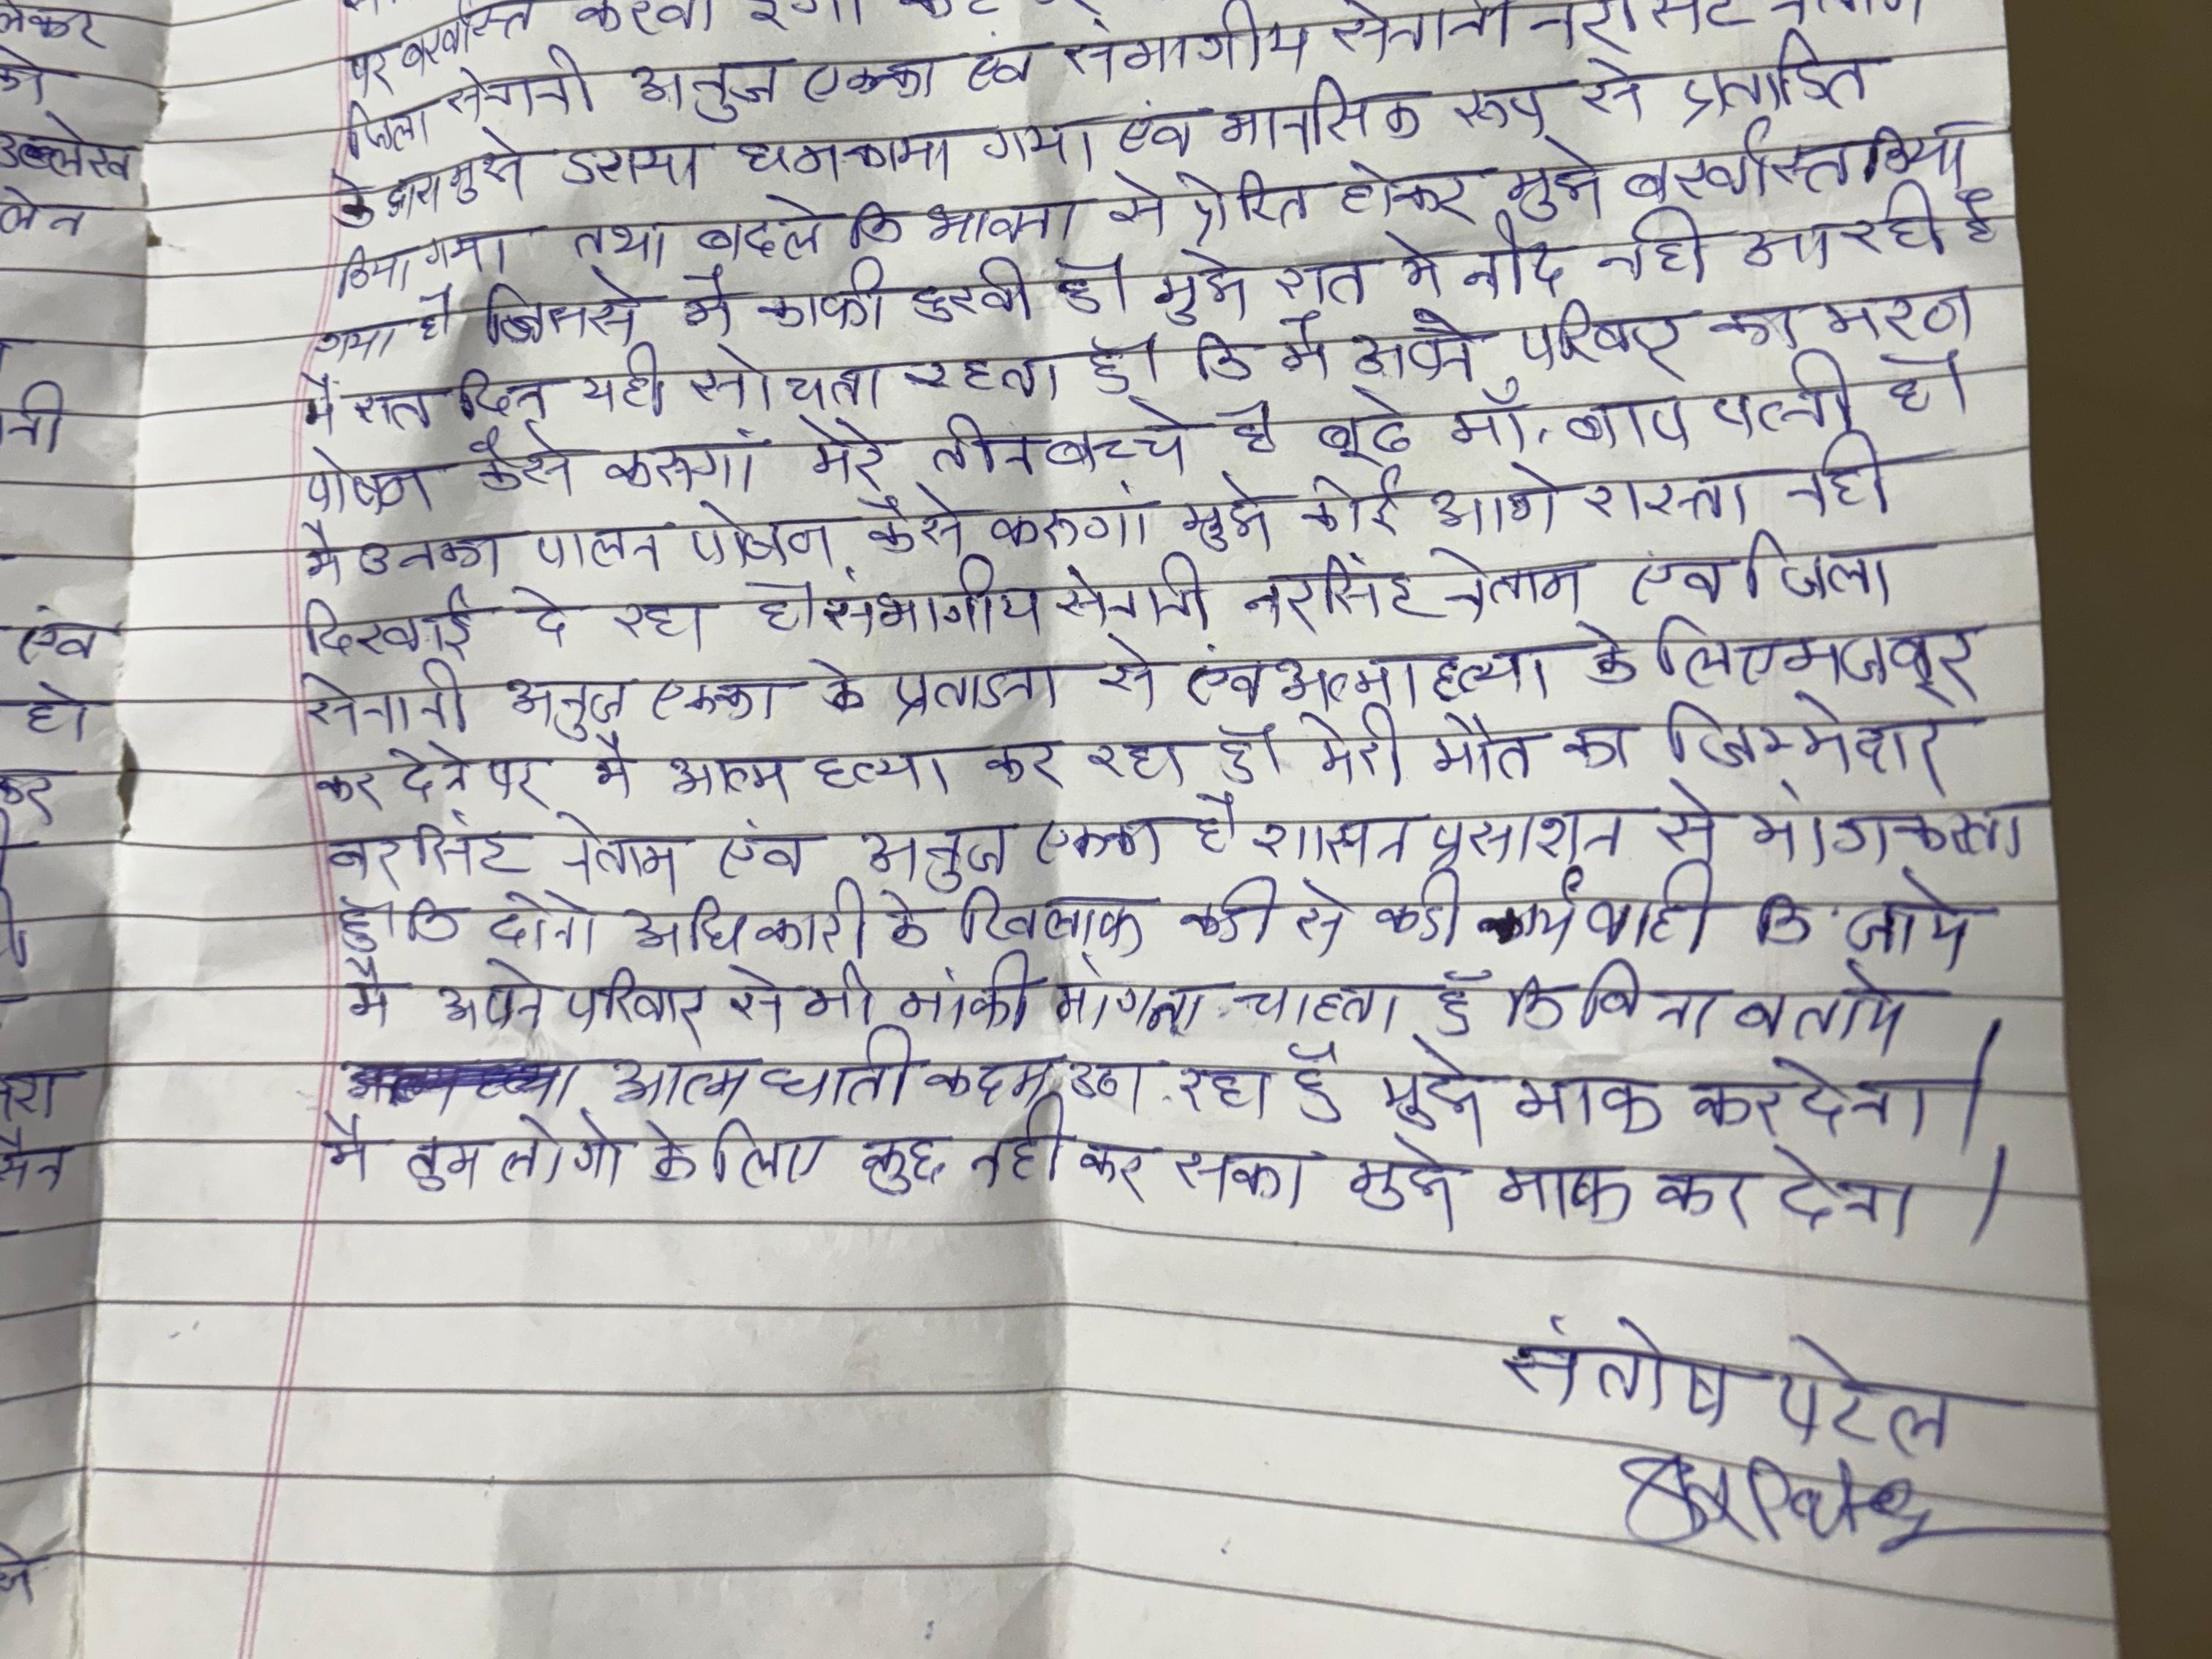 लेकर
को
उल्लेख
लेन
नी
एंव
हो
कर
मैन
पर बरर्वास्त करवा
जिला सेनानी अनुज एक्का एंव संभागीय सेनानी
के द्वारा मुझे डराया धमकाया गया एंव मानसिक रूप से प्रताडित
किया गया तथा बदले कि भावना से प्रेरित होकर मुझे बर्खास्त किया
गया है जिनसे मै काफी दुखी हॅू मुझे रात मे नींद नही आ रही है
मै रात दिन यही सोचता रहता हॅू कि मै अपने परिवार का भरण
पोषण कैसे करुगां मेरे तीन बच्चे है बूढे मॉ, बाप पत्नी है
मै उनका पालन पोषण कैसे करुगां मुझे कोई आगे रास्ता नही
दिखाई दे रहा है संभागीय सेनानी नरसिंह नेताम एंव जिला
सेनानी अनुज एक्का के प्रताडना से एंव आत्माहत्या के लिए मजबूर
कर देने पर मै आत्म हत्या कर रहा हॅू मेरी मौत का जिम्मेदार
नरसिंह नेताम एंव अनुज एक्का है शासन प्रसाशन से मांग करता
हॅू कि दोनो अधिकारी के खिलाफ कडी से कडी कार्यवाही कि जाये
मै अपने परिवार से भी मांफी मांगना चाहता हॅू कि बिना बताये
आत्म घाती कदम उठा रहा हॅू मुझे माफ कर देना ।
मै तुम लोगो के लिए कुछ नही कर सका मुझे माफ कर देना ।
संतोष पटेल